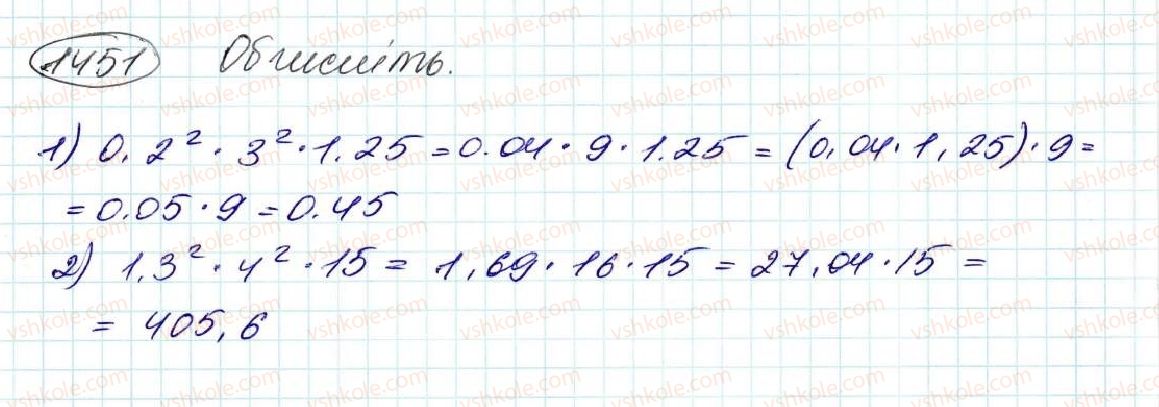 1451 Обчисліть.
1) 0,2² · 3² · 1.25 = 0.04 · 9 · 1.25 = (0,04 · 1,25) · 9 =
= 0.05 · 9 = 0.45
2) 1,3² · 4² · 15 = 1,69 · 16 · 15 = 27,04 · 15 =
= 405,6
vshkole.com